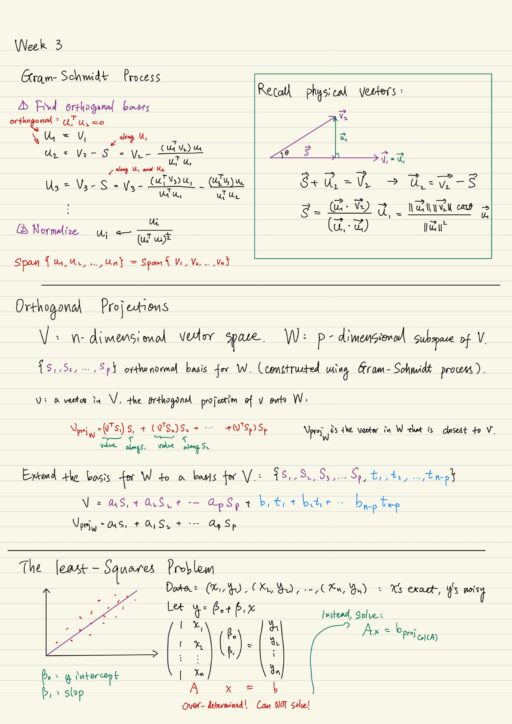 Week 3
Gram-Schmidt Process
① Find orthogonal bases
orthogonal: u₁ᵀu₂=0
u₁ = v₁
along u₁
u₂ = v₂ - S = v₂ - (u₁ᵀv₂)u₁ / u₁ᵀu₁
along u₁ and u₂
u₃ = v₃ - S = v₃ - (u₁ᵀv₃)u₁ / u₁ᵀu₁ - (u₂ᵀv₃)u₂ / u₂ᵀu₂
⋮
② Normalize uᵢ ← uᵢ / (uᵢᵀuᵢ)^½
span{u₁, u₂, ..., uₙ} = span{v₁, v₂, ..., vₙ}
Recall physical vectors:
v⃗₂
u⃗₂
θ
S⃗
v⃗₁ = u⃗₁
S⃗ + u⃗₂ = v⃗₂ → u⃗₂ = v⃗₂ - S⃗
S⃗ = (u⃗₁ · v⃗₂) / (u⃗₁ · u⃗₁) u⃗₁ = ||u⃗₁|| ||v⃗₂|| cosθ / ||u⃗₁||² u⃗₁
Orthogonal Projections
V: n-dimensional vector space. W: p-dimensional subspace of V.
{S₁, S₂, ..., Sp} orthonormal basis for W. (constructed using Gram-Schmidt process).
v: a vector in V. the orthogonal projection of v onto W:
v_projW = (vᵀS₁)S₁ + (vᵀS₂)S₂ + ··· + (vᵀSp)Sp
value along S₁ value along S₂
v_projW is the vector in W that is closest to v.
Extend the basis for W to a basis for V: {S₁, S₂, S₃, ... Sp, t₁, t₂, ..., tn-p}
V = a₁S₁ + a₂S₂ + ··· apSp + b₁t₁ + b₂t₂ + ·· bn-p tn-p
v_projW = a₁S₁ + a₂S₂ + ··· apSp
The least-Squares Problem
Data: (x₁, y₁), (x₂, y₂), ..., (xn, yn) : x's exact, y's noisy
Let y = β₀ + β₁x
(1 x₁
1 x₂
⋮ ⋮
1 xn) (β₀
β₁) = (y₁
y₂
⋮
yn)
A x = b
Over-determined! Can NOT solve!
instead, solve:
Ax = b_projCol(A)
β₀: y intercept
β₁: slop